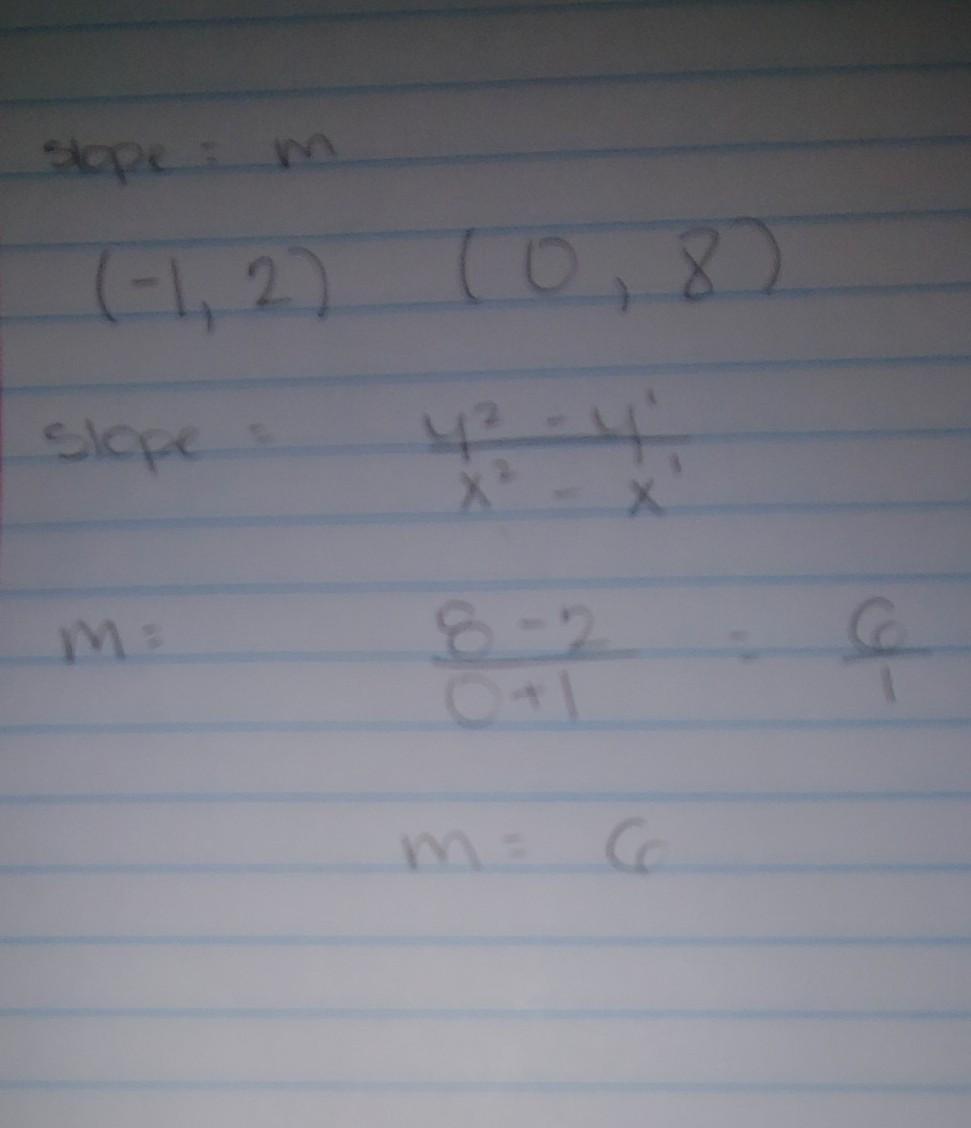 slope = m
(-1, 2) (0, 8)
slope = y² - y¹ / x² - x¹
m = 8 - 2 / 0 + 1 = 6 / 1
m = 6